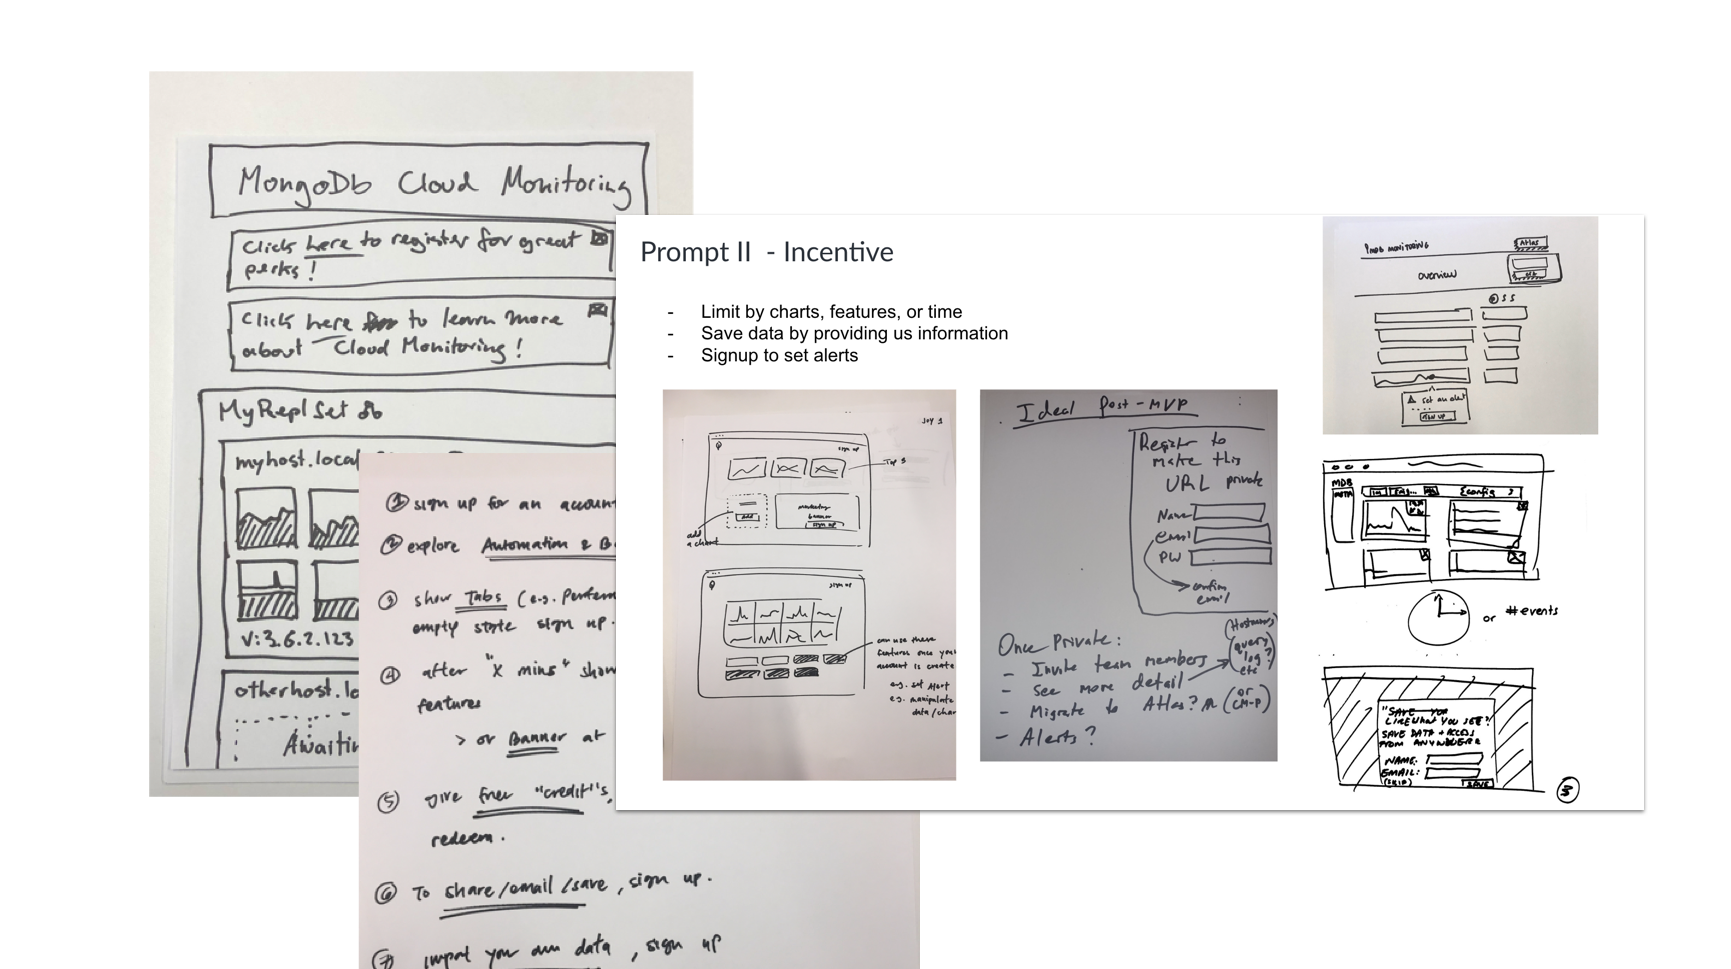 MongoDb Cloud Monitoring
Click here to register for great
perks!
Click here to learn more
about Cloud Monitoring!
MyReplSet
myhost.local
V:3.6.2.123
otherhost.lo
Awaitin
① sign up for an accoun
② explore Automation & B
③ show Tabs (e.g. Perform
empty state sign up.
④ after "X mins" show
features
> or Banner at
⑤ give free "credit"s,
redeem.
⑥ To share/email/save, sign up.
⑦ import your own data, sign up
Prompt II - Incentive
- Limit by charts, features, or time
- Save data by providing us information
- Signup to set alerts
Joy 1
sign up
Top 3
add
a chart
add
marketing
banner
sign up
sign up
can use these
features once your
account is create
e.g. set Alert
e.g. manipulate
data/char
Ideal Post-MVP
Register to
make this
URL private
Name
email
PW
confirm
email
Once Private:
- Invite team members
- See more detail
- Migrate to Atlas?
- Alerts?
(Hostnames)
(query
log?
etc
(or
CM-P)
MONITORING
Atlas
overview
set an alert
SIGN UP
MDB
config
or # events
"SAVE YOU
LIKE WHAT YOU SEE?
SAVE DATA + ACCESS
FROM ANYWHERE
NAME:
EMAIL:
(SKIP)
SAVE
3